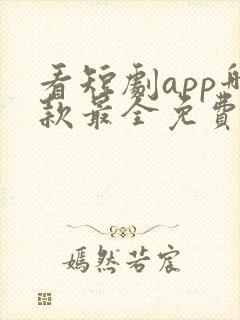 看短劇app
款最全免費
嫣然若宸